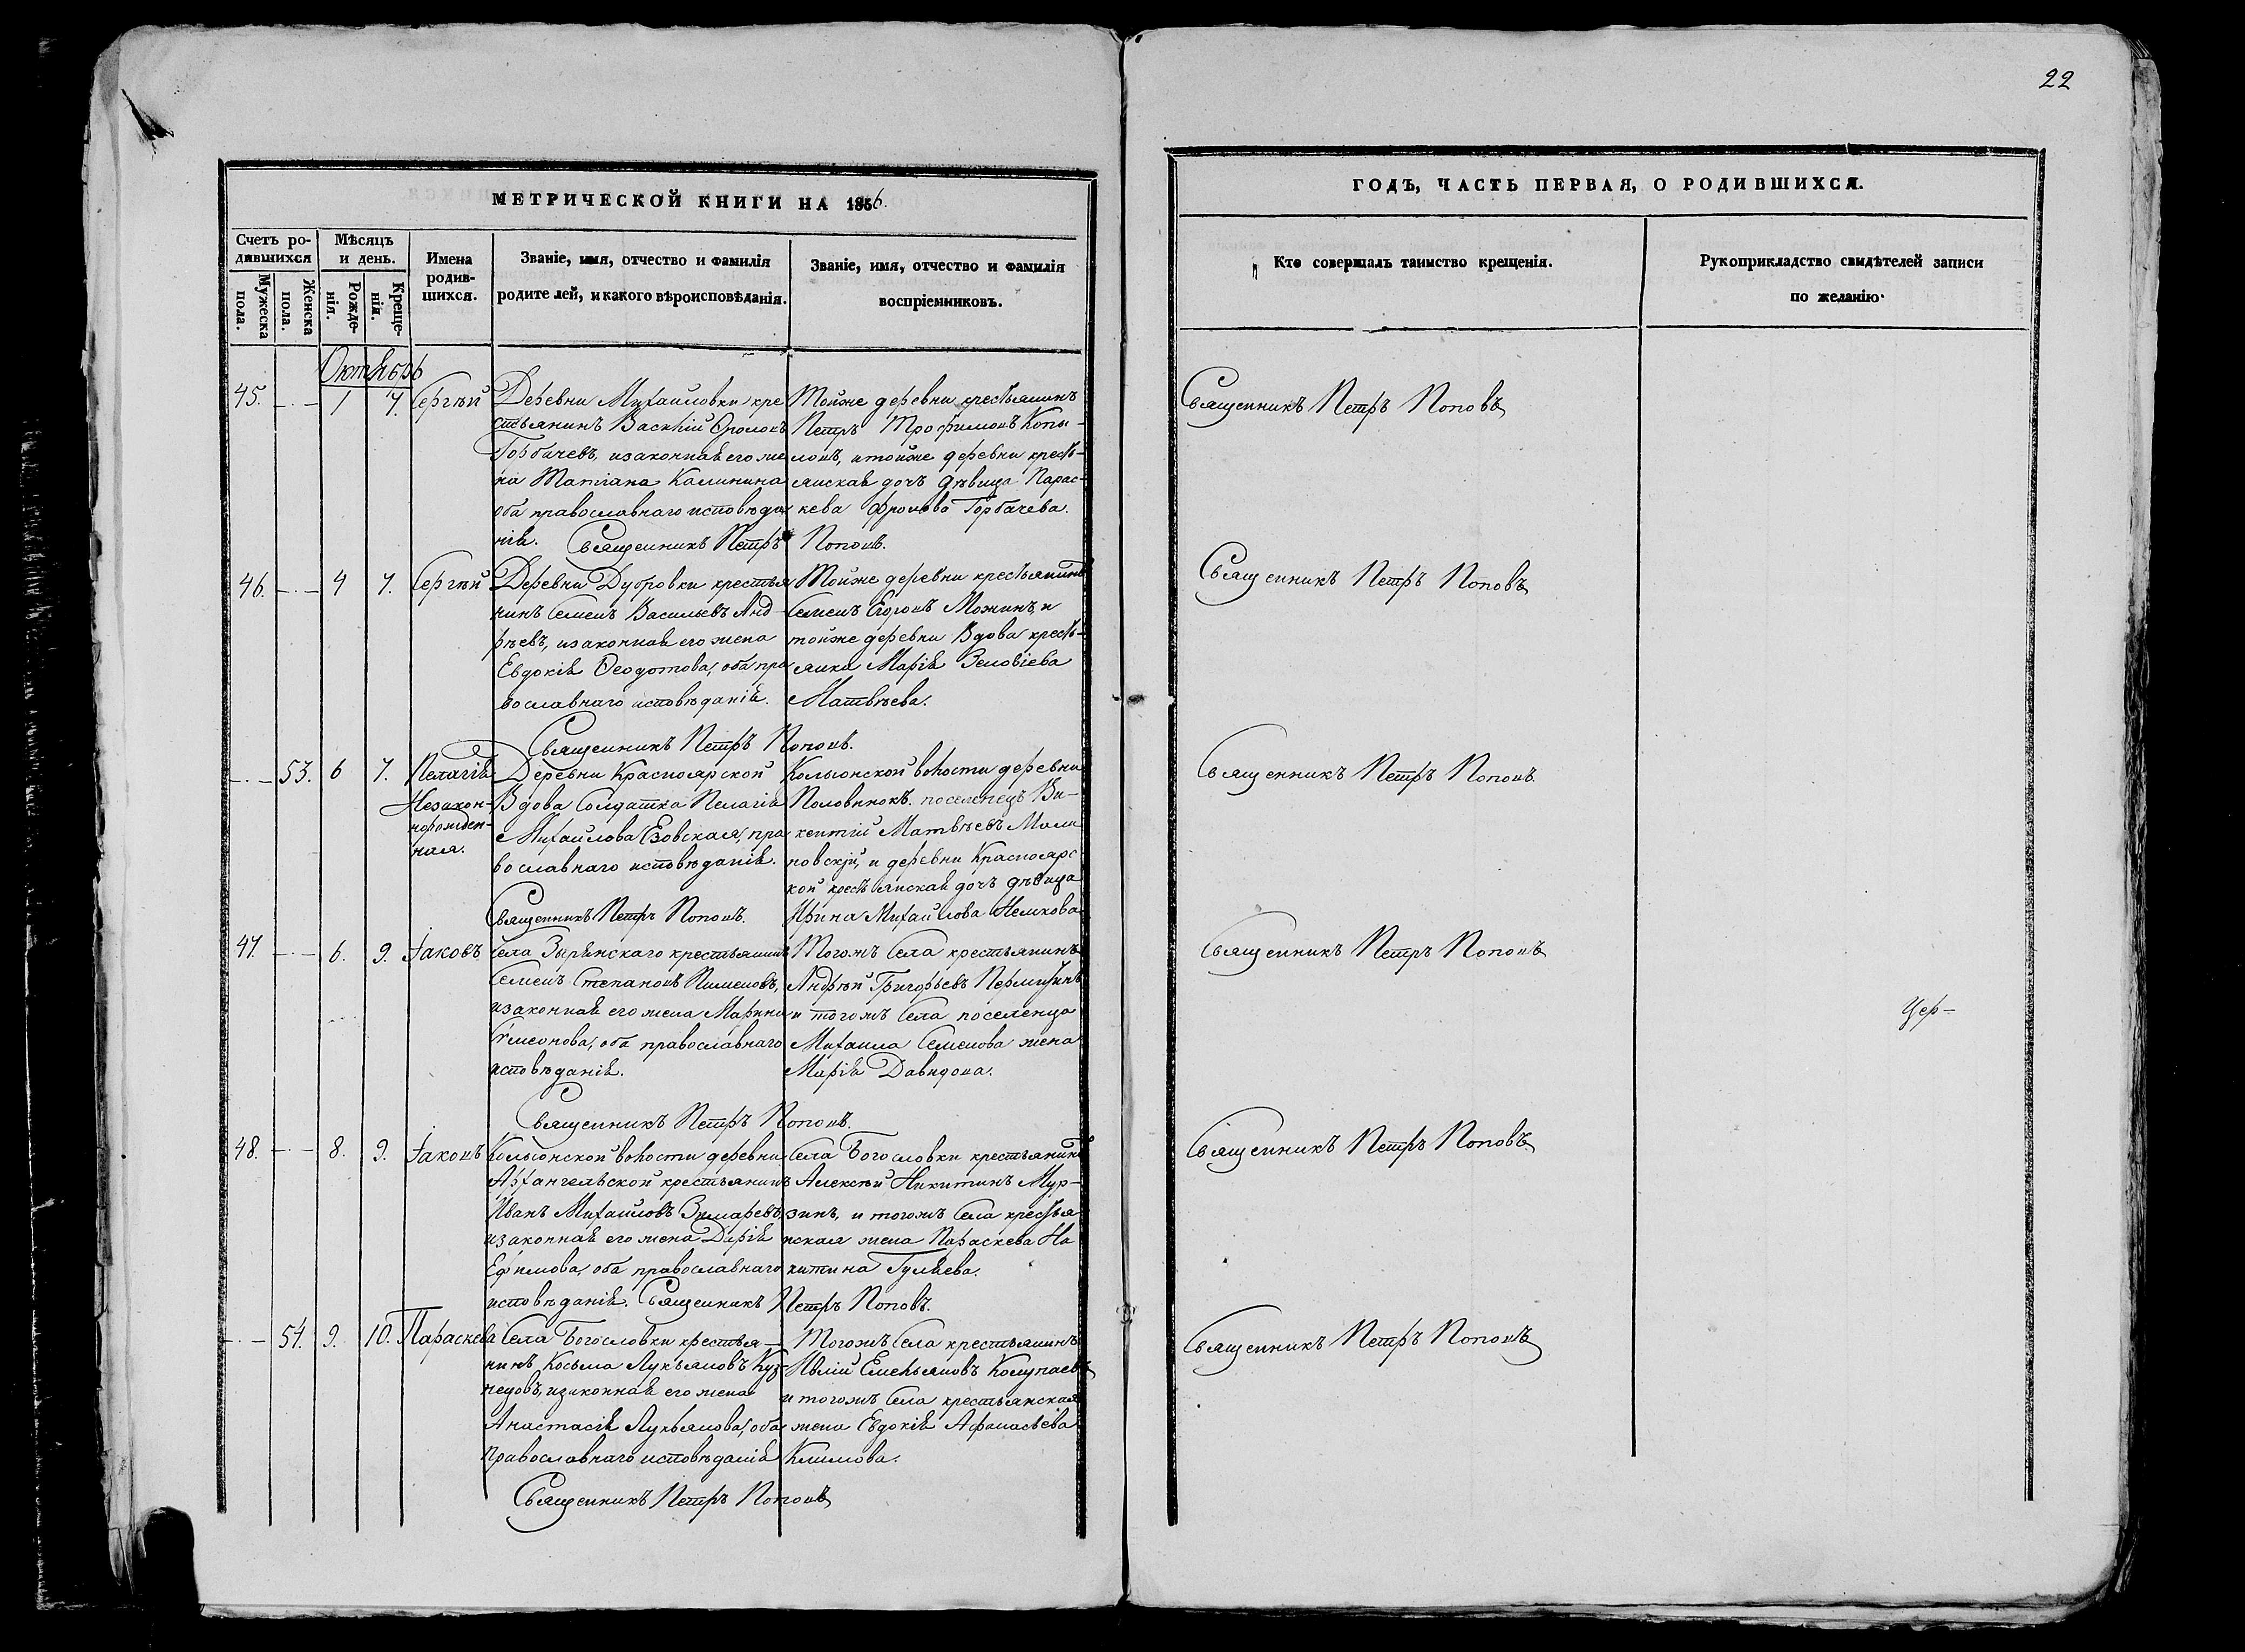 22
МЕТРИЧЕСКОЙ КНИГИ НА 1856.
ГОДЪ, ЧАСТЬ ПЕРВАЯ, О РОДИВШИХСЯ.
Счетъ родившихся
Мужеска пола.
Женска пола.
Мѣсяцъ и день.
Рожденія.
Крещенія.
Имена родившихся.
Званіе, имя, отчество и фамилія родителей, и какого вѣроисповѣданія.
Званіе, имя, отчество и фамилія воспріемниковъ.
Кто совершалъ таинство крещенія.
Рукоприкладство свидѣтелей записи по желанію.
Октябрь
45. 1 7. Сергѣй
Деревни Михайловки кре
стьянинъ Василій Фроловъ
Горбачевъ, и законная его же
на Татіана Калинина
оба православнаго исповѣда
нія. Священникъ Петръ Поповъ.
Тойже деревни крестьянинъ
Петръ Трофимовъ Копы-
ловъ, и тойже деревни кресть-
янская дочь дѣвица Парас-
кева Фролова Горбачева.
Священникъ Петръ Поповъ
46. 4 7. Сергѣй
Деревни Дубровки крестья
нинъ Семенъ Васильевъ Анд-
рѣевъ, и законная его жена
Евдокія Ѳеодотова, оба пра
вославнаго исповѣданія.
Священникъ Петръ Поповъ.
Тойже деревни крестьянинъ
Семенъ Егоровъ Можинъ, и
тойже деревни Вдова кресть-
янка Марія Зеновіева
Матвѣева.
Священникъ Петръ Поповъ
53. 6 7. Пелагія
Незакон-
норожден-
ная.
Деревни Красноярской
Вдова Солдатка Пелагія
Михайлова Езовская, пра
вославнаго исповѣданія.
Священникъ Петръ Поповъ.
Колыонской волости деревни
Половинокъ. поселенецъ Ви-
кентій Матвѣевъ Мали
новскій, и деревни Красноярс
кой крестьянская дочь дѣвица
Ирина Михайлова Немкова
Священникъ Петръ Поповъ.
47. 6. 9. Іаковъ
Села Зырянскаго крестьянинъ
Семенъ Степановъ Пименовъ,
и законная его жена Марина
Симеонова, оба православнаго
исповѣданія.
Священникъ Петръ Поповъ.
Тогожъ Села крестьянинъ
Андрѣй Григорьевъ Пермитинъ
и тогожъ Села поселенца
Михаила Семенова жена
Марія Давидова.
Священникъ Петръ Поповъ
Цер-
48. 8. 9. Іаковъ
Колыонской волости деревни
Архангельской крестьянинъ
Иванъ Михайловъ Зимаревъ,
и законная его жена Дарія
Ефимова, оба православнаго
исповѣданія. Священникъ Петръ Поповъ.
Села Богословки крестьянинъ
Алексѣй Никитинъ Мур-
зинъ, и тогожъ Села крестья
нская жена Параскева На
китина Гуляева.
Священникъ Петръ Поповъ
54. 9. 10. Параскева
Села Богословки крестья-
нинъ Косьма Лукьяновъ Куз-
нецовъ, и законная его жена
Анастасія Лукьянова, оба
православнаго исповѣданія
Священникъ Петръ Поповъ
Тогожъ Села крестьянинъ
Емельяновъ Колупаевъ
и тогожъ Села крестьянская
жена Евдокія Афанасьева
Климова.
Священникъ Петръ Поповъ